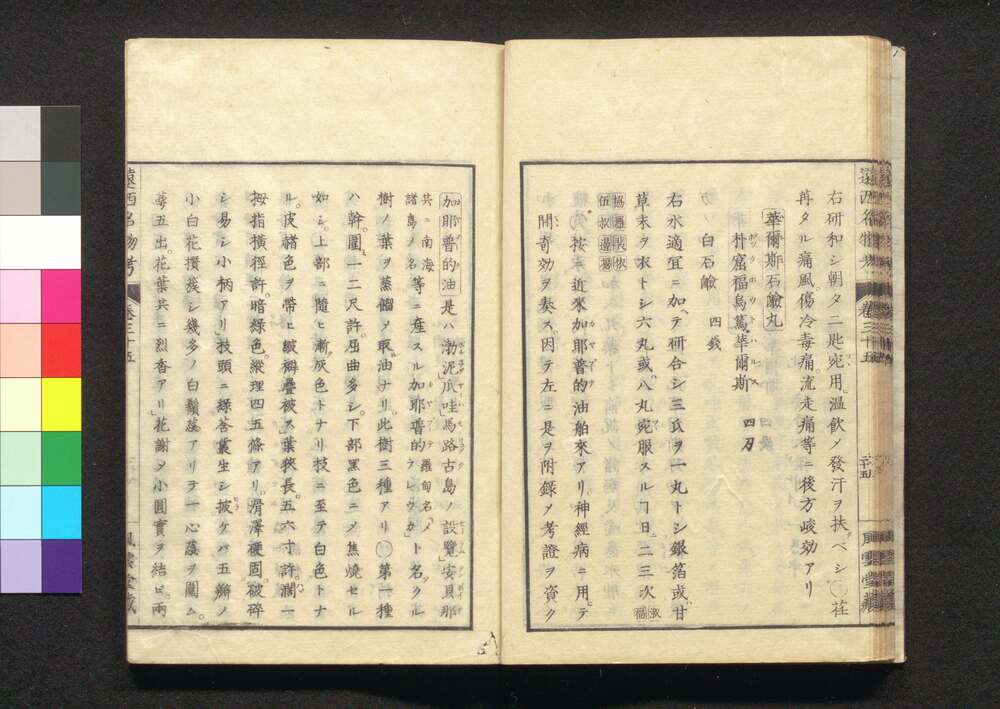 右研和シ朝夕二匙宛用温飲〆發汗ヲ扶ベシ〇荏
苒タル痛風傷冷毒痛流走痛等ニ後方峻効アリ
華爾斯石鹸丸
朴窟福烏篤華爾斯 四刃
白石鹸 四錢
右水適宜ニ加ヘテ研合シ三瓦ヲ一丸トシ銀箔或甘
草末ヲ衣トシ六丸或ハ八丸宛服スルヿ日ニ二三次
按ニ近來加耶普的油舶來アリ神經病ニ用テ
間奇効ヲ奏ス因テ左ニ是ヲ附錄〆考證ヲ資ク
遠西名物考 卷三十五 風雲堂藏
加耶普的油是ハ渤泥瓜哇馬路古島ノ設覽安貝那
共ニ南海諸島ノ名等ニ産スル加耶普的羅甸名ト名クル
樹ノ葉ヲ蒸餾〆取油ナリ此樹三種アリ〇第一種
ハ幹圍一二尺許屈曲多シ下部黑色ニ〆焦燒セル
如シ上部ニ隨ヒ漸灰色トナリ枝ニ至テ白色トナ
ル皮赭色ヲ帶ヒ皴襉疊被ス葉狹長五六寸許濶一
拇指橫徑許暗綠色縱理四五條アリ滑澤硬固破碎
シ易シ小柄アリ枝頭ニ綠荅叢生シ披ケバ五瓣ノ
小白花攅簇シ幾多ノ白鬚蕋アリテ一心蕋ヲ圍ム
萼五出花葉共ニ烈香アリ花謝〆小圓實ヲ結ビ兩